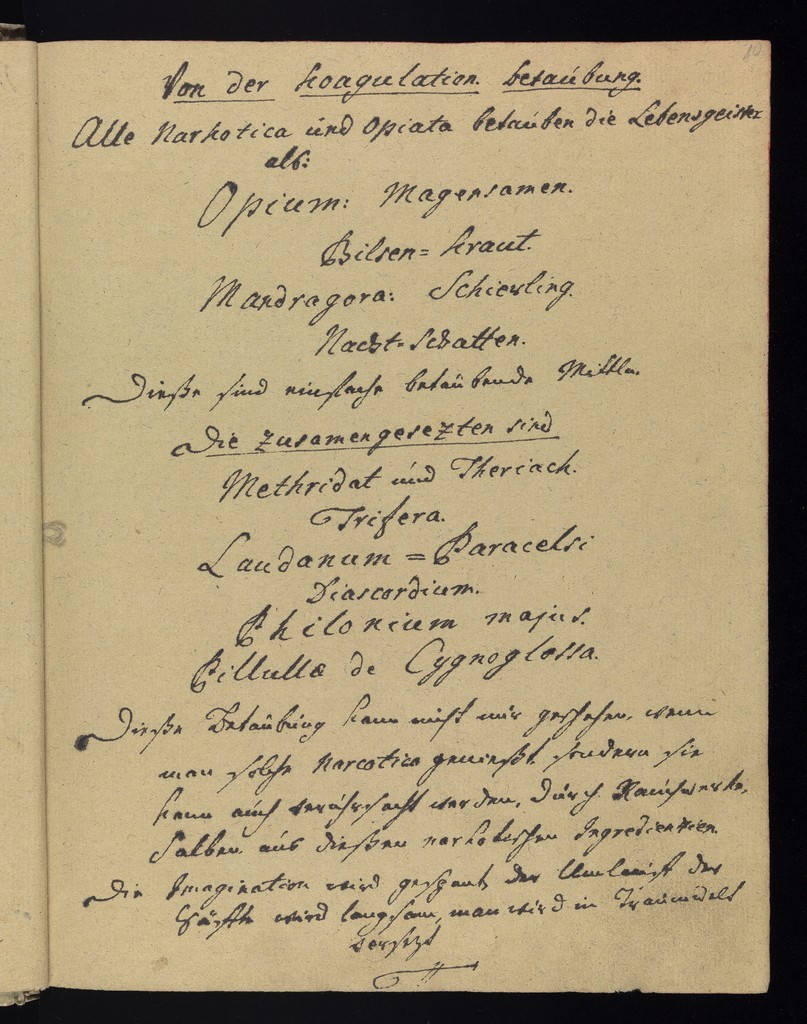 80
Von der Koagulation. betaübung.
Alle Narkotica und Opiata betaüben die Lebensgeister
als:
Opium: Magensamen.
Bilsen= Kraut.
Mandragora: Schierling.
Nacht=Schatten.
Dieße sind einfache betaübende Mittln.
Die zusamengesezten sind
Methridat und Theriach.
Trifera.
Laudanum = Paracelsi
Diascordium.
Philonium majus.
Pillullæ de Cygnoglossa.
Dieße Betaübung kann nicht nur geschehen, wenn
man solche Narcotica genießt sondern sie
kann auch verührsacht werden, durch Rauchwerke,
Salben aus dießen narkotischen Ingredienzien.
Die Imagination wird gespant, der Umlauf der
Säffte wird langsam, man wird in Traumwelt
versezt